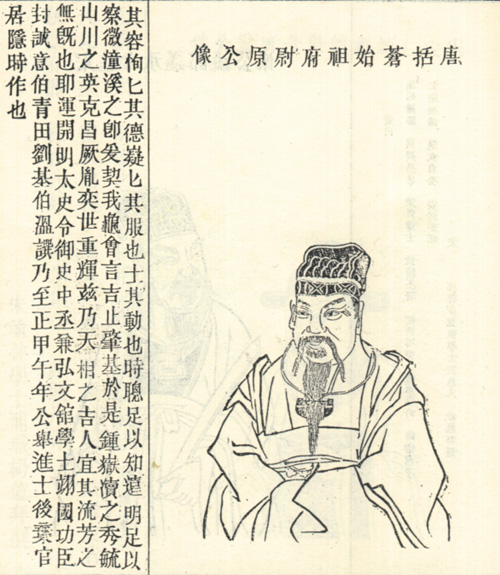 唐括蒼始祖府尉原公像
其容恂匕其德嶷匕其服也士其動也時聰足以知遠明足以
察微潼溪之卽爰契我龜會言吉止肇基於是鍾嶽瀆之秀毓
山川之英克昌厥胤奕世重輝兹乃天相之吉人宜其流芳之
無旣也耶運開明太史令御史中丞兼弘文舘學士翊國功臣
封誠意伯青田劉基伯溫譔乃至正甲午年公舉進士後棄官
居隱時作也